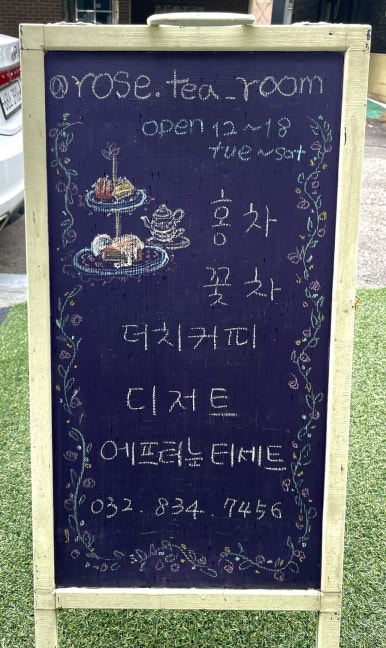 @rose.tea_room
open 12~18
tue~sat
홍차
꽃차
더치커피
디저트
에프터눈티세트
032.834.7456